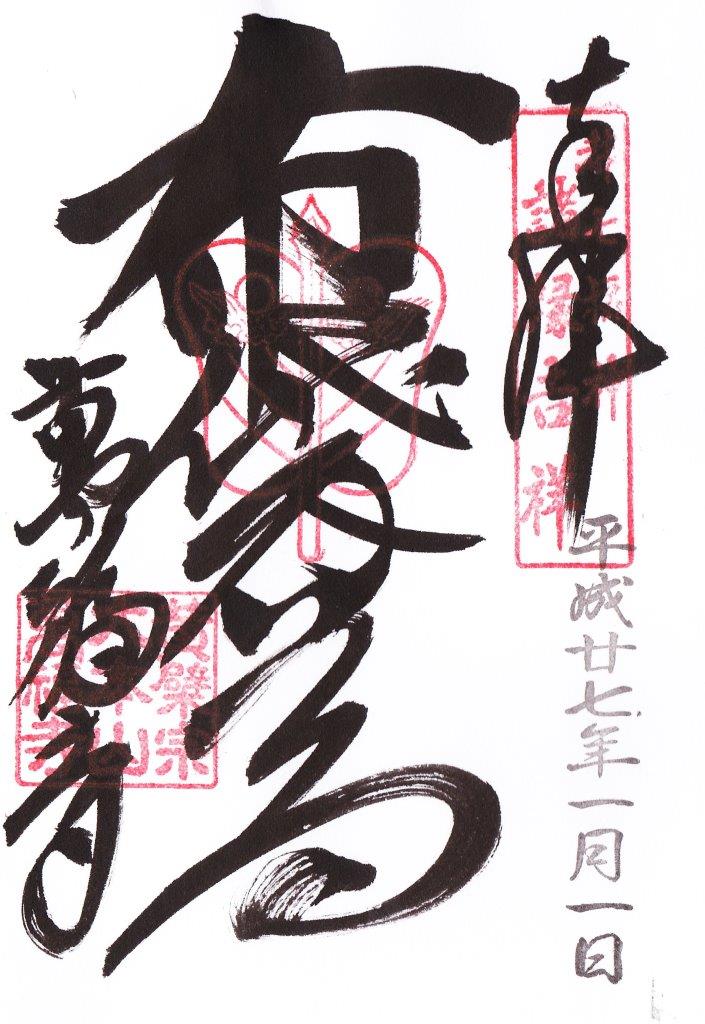 奉拝
諸縁吉祥
平成廿七年一月一日
布袋尊
萬福寺
黄檗宗
大本山
萬福寺